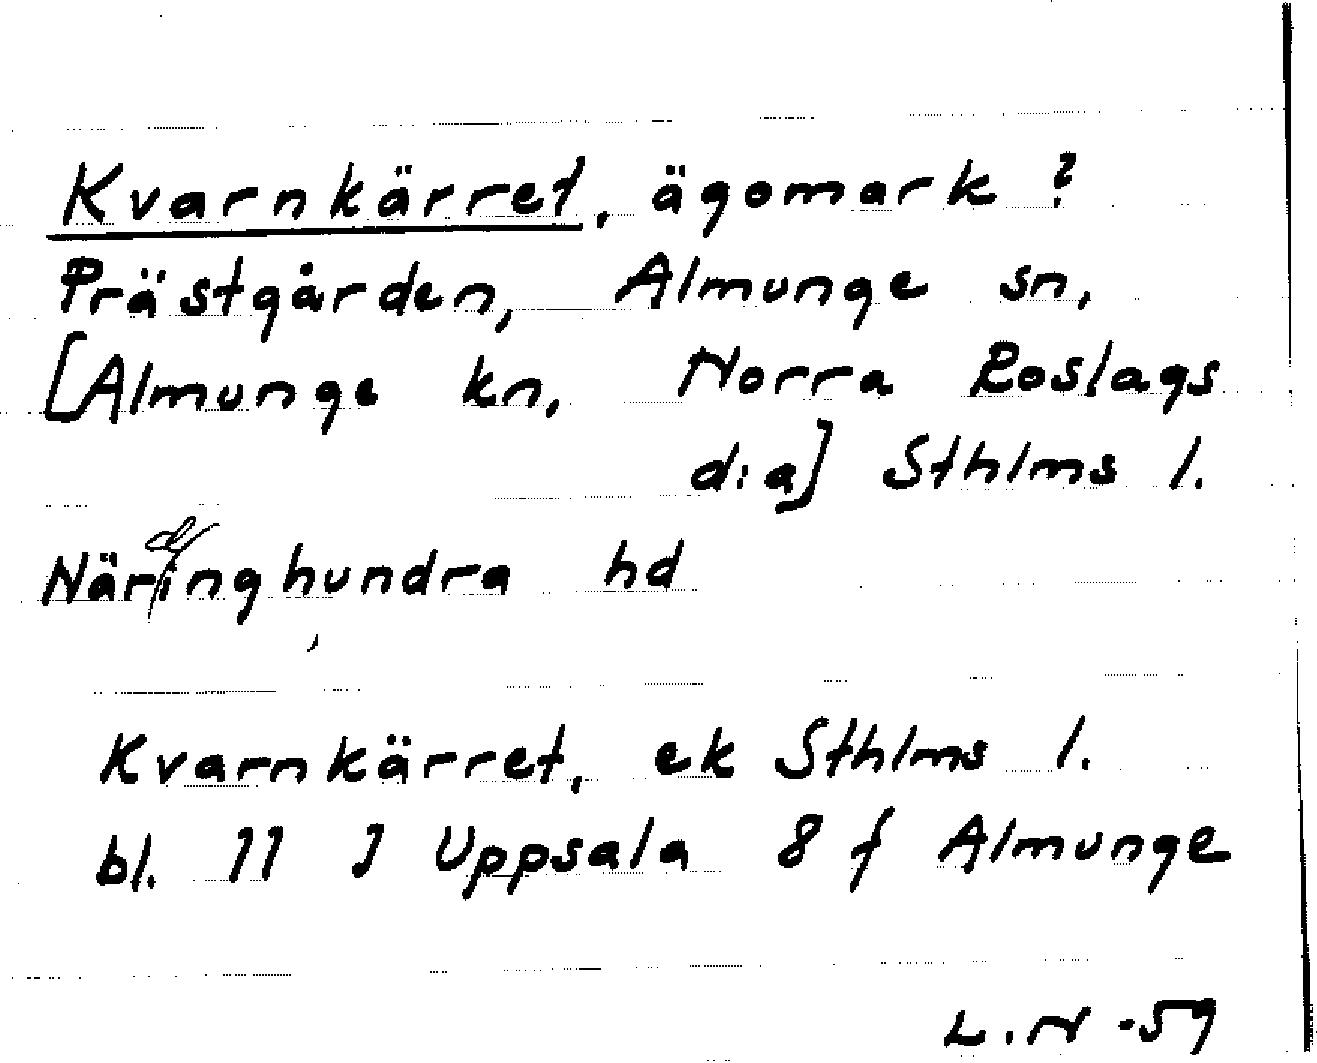 Kvarnkärret, ägomark?
Prästgården, Almunge sn,
[Almunge kn, Norra Roslags
d:a] Sthlms l.
Näringhundra hd
Kvarnkärret, ek Sthlms l.
bl. 11 I Uppsala 8 f Almunge
L.N -59